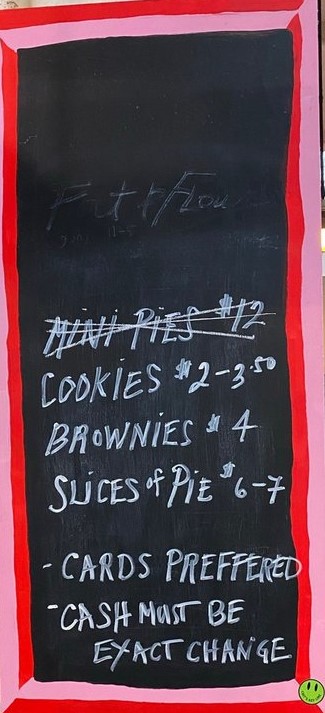 MINI PIES $12
COOKIES $2-3.50
BROWNIES $4
SLICES of PIE $6-7
- CARDS PREFFERED
- CASH MUST BE
EXACT CHANGE